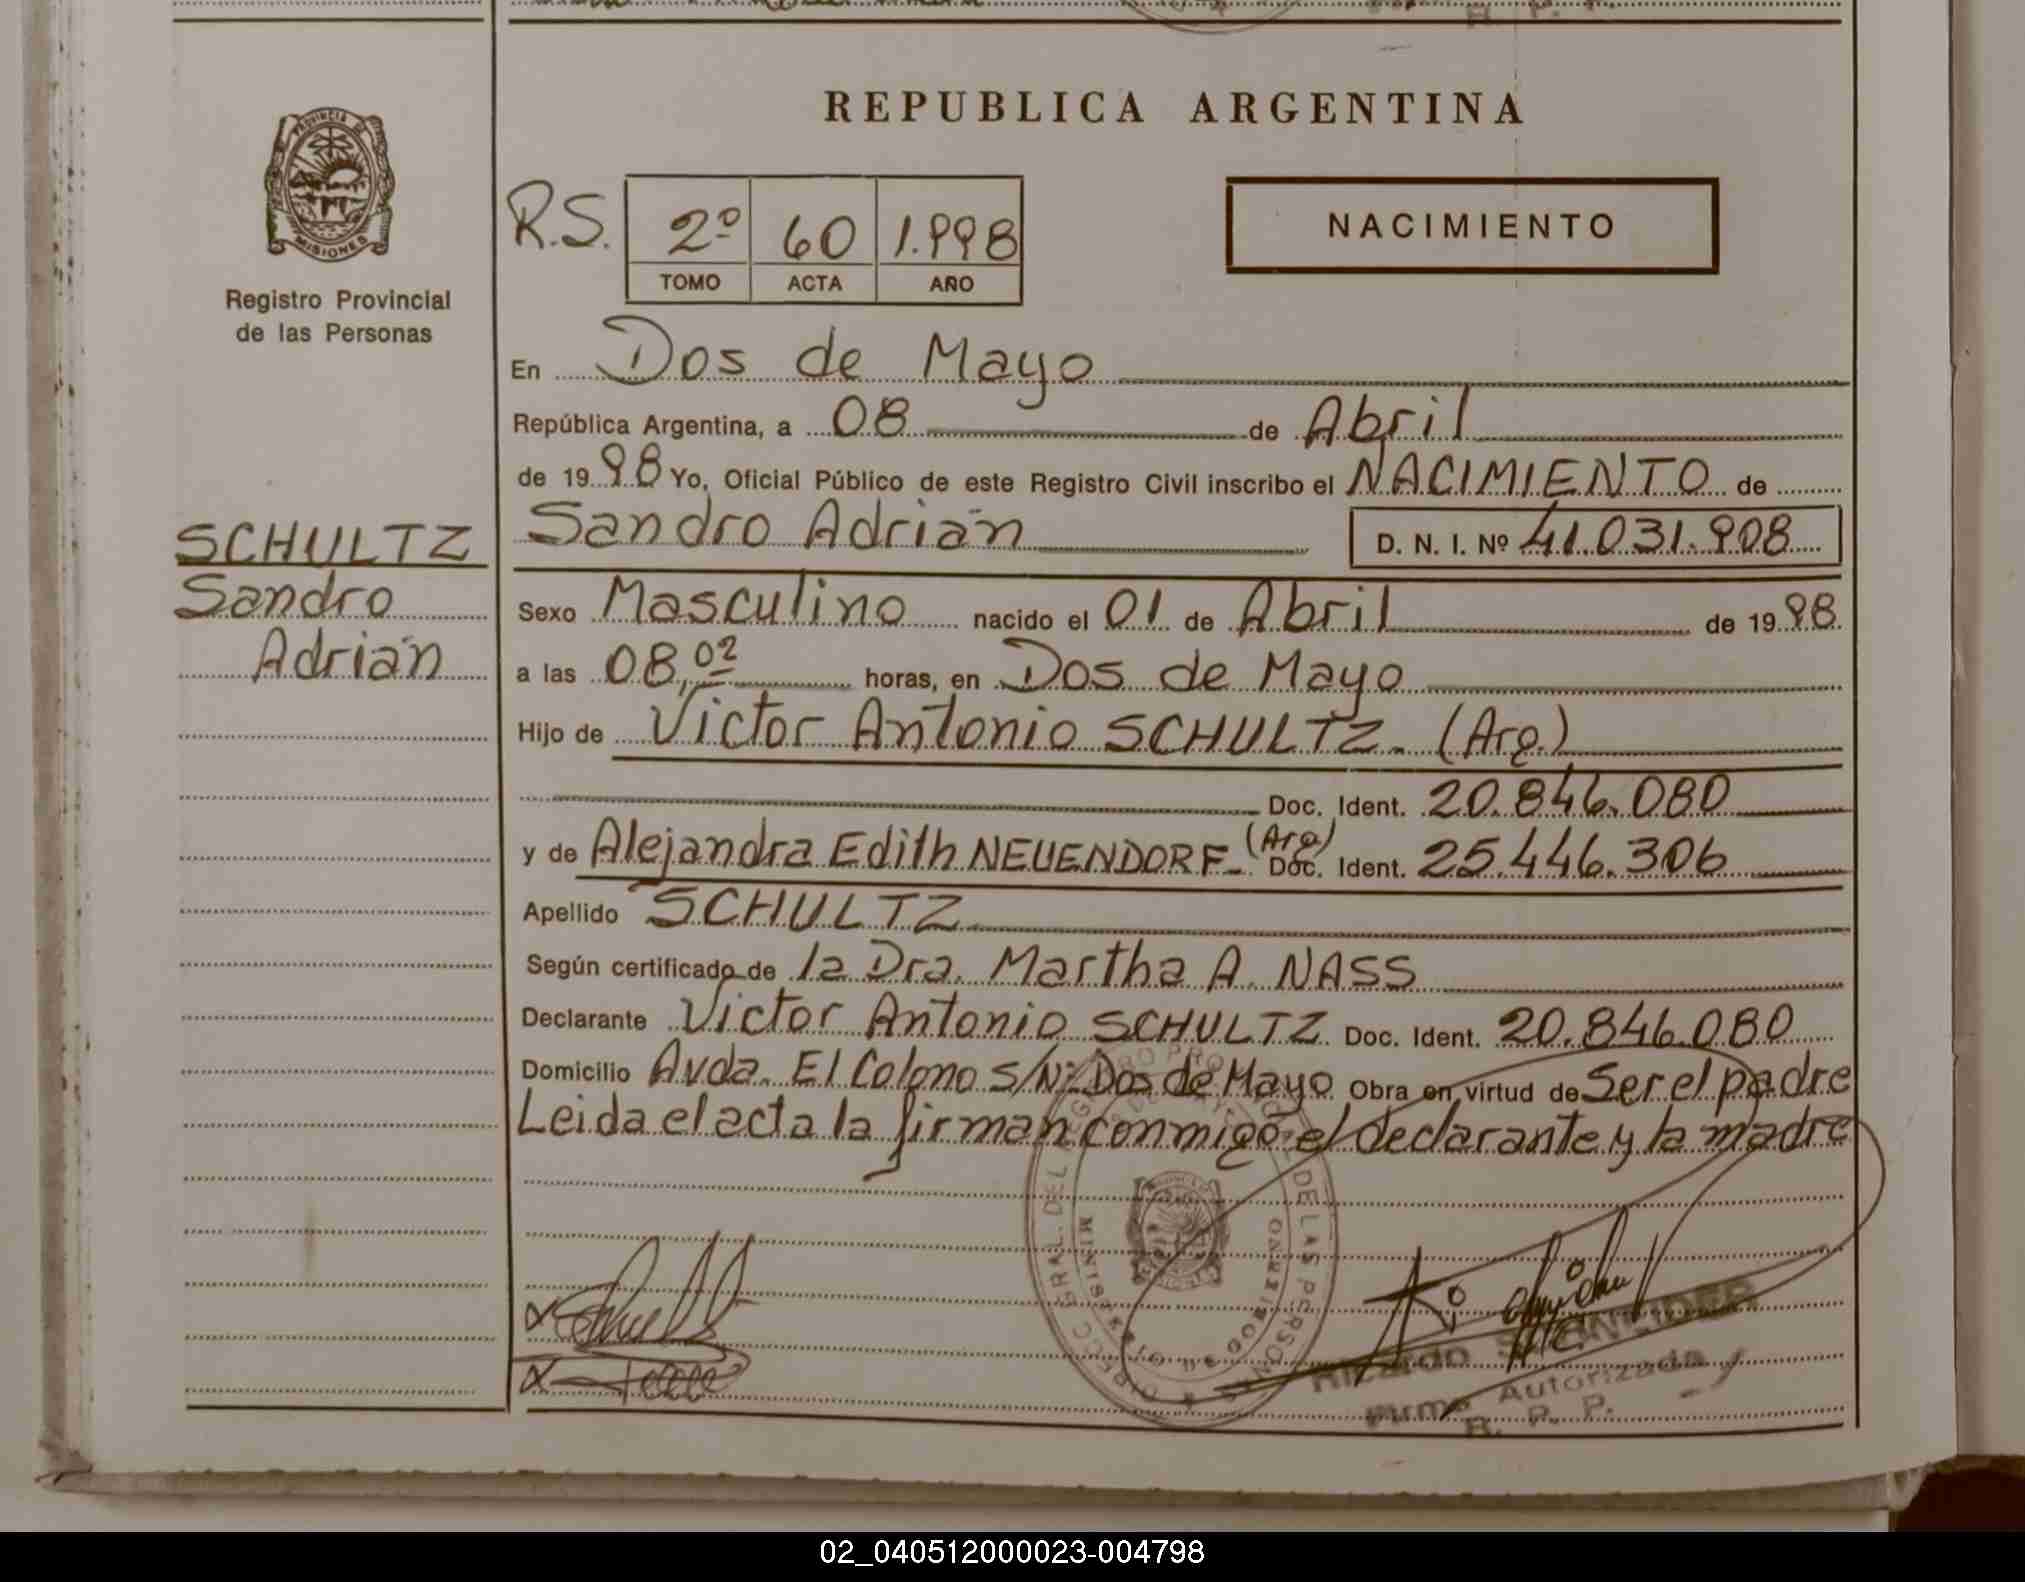 REPUBLICA ARGENTINA
PROVINCIA DE
MISIONES
Registro Provincial
de las Personas
R.S. 2º 60 1.998
TOMO ACTA AÑO
NACIMIENTO
En Dos de Mayo
República Argentina, a 08 de Abril
de 1998 Yo, Oficial Público de este Registro Civil inscribo el NACIMIENTO de
Sandro Adrián D. N. I. Nº 41.031.908
SCHULTZ
Sandro
Adrián
Sexo Masculino nacido el 01 de Abril de 1998
a las 08,02 horas, en Dos de Mayo
Hijo de Victor Antonio SCHULTZ. (Arg.)
Doc. Ident. 20.846.080
y de Alejandra Edith NEUENDORF- (Arg) Doc. Ident. 25.446.306
Apellido SCHULTZ
Según certificado de la Dra. Martha A. NASS
Declarante Victor Antonio SCHULTZ Doc. Ident. 20.846.080
Domicilio Avda. El Colono S/Nº Dos de Mayo Obra en virtud de Ser el padre
Leida el acta la firman conmigo el declarante y la madre
Ricardo
Firma Autorizada
R. P. P.
02_040512000023-004798